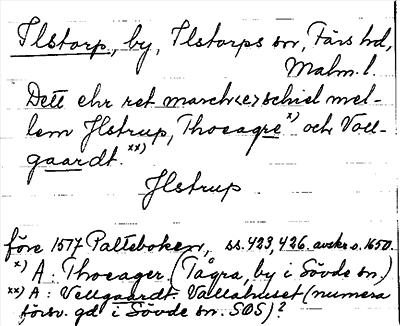 Ilstorp, by, Ilstorps sn, Färs hd,
Malm. l.
Dett ehr ret march<e>schiel mel-
lem Jlstrup, Thoeagre x) och Vall-
gaardt. xx)
Jlstrup
före 1517 Palteboken, ss. 423, 426. avskr. o. 1650.
x) A: Thoeager (Tågra, by i Sövde sn)
xx) A: Vellgaardt. Vallahuset (numera
försv. gd i Sövde sn. SOS)?